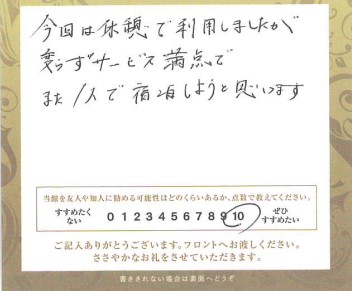 今回は休憩で利用しましたが
変らずサービス満点で
また1人で宿泊しようと思います
当館を友人や知人に勧める可能性はどのくらいあるか、点数で教えてください。
すすめたく
ない
0 1 2 3 4 5 6 7 8 9 10
ぜひ
すすめたい
ご記入ありがとうございます。フロントへお渡しください。
ささやかなお礼をさせていただきます。
書ききれない場合は裏面へどうぞ